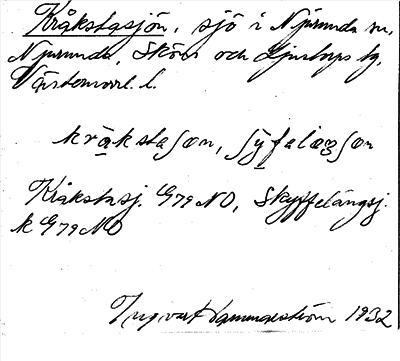 Kråkstasjön, sjö i Njurunda sn,
Njurunda, Sköns och Ljustorps tg,
Västernorrl. l.
kråkstaſon, ſyfalaŋſon
Kråkstasj. G79 NO, Skyffelångsj.
k G79 NO
Ingvart 1932